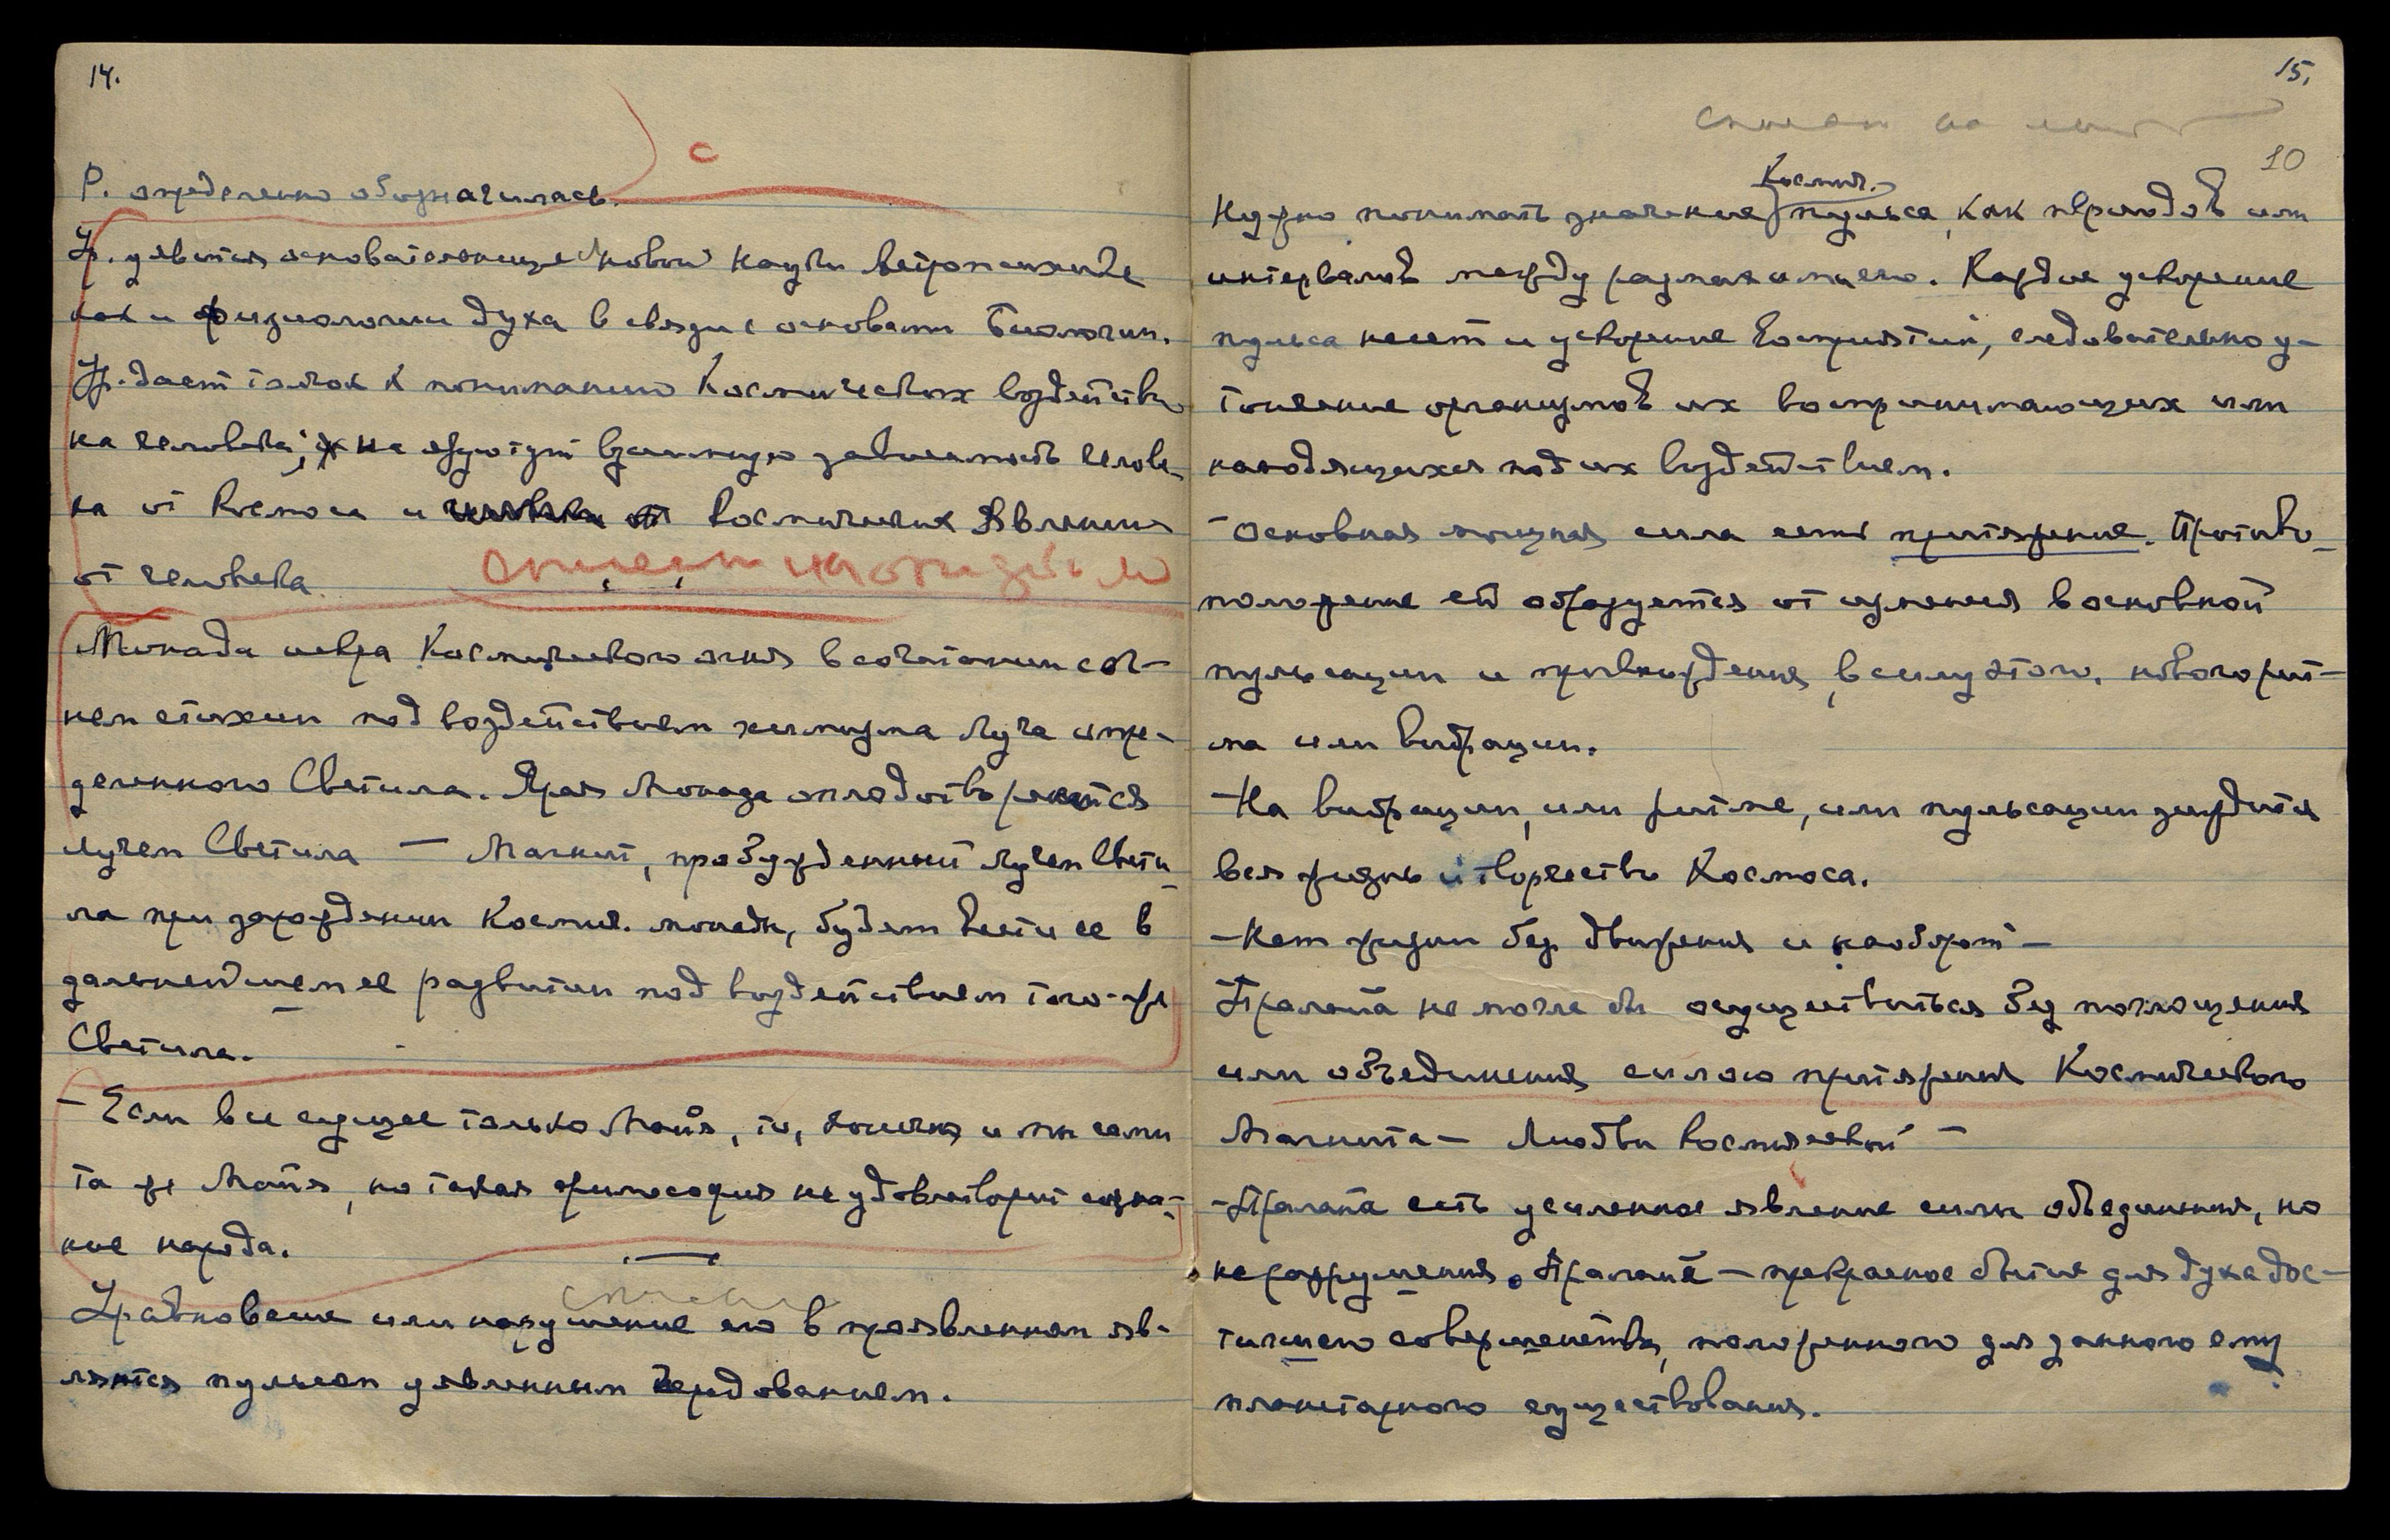 14.
Р. определенно обозначилась.
Ур. явится основательницей новой науки астрохимии
как и физиологии духа в связи с основами Биологии.
Ур. дает толчок к пониманию Космических воздейств.
на человека; не взаимную зависимость челове-
ка от Космоса и космических явлений
от человека.
Монада искра Космического огня в сочетании с ог-
нем стихии под воздействием химизма Луча опре-
деленного Светила. Ярая Монада оплодотворяется
лучем Светила — Магнит, пробужденный лучем Свети-
ла при зарождении Космич. монады, будет вести ее в
дальнейшем ее развитии под воздействием того-же
Светила.
— Если все сущее только Майя, то, конечно и мы сами
та же Майя, но такая философия не удовлетворит созна-
ние народа.
списан
Уравновесие или нарушение его в проявленном яв-
ляется пульсом уявленным чередованием.
15.
10
Космич.
Нужно понимать значение пульса, как периодов или
интервалов между размахами его. Каждое ускорение
пульса несет и ускорение восприятий, следовательно у-
тончение организмов их воспринимающих или
находящихся под их воздействием.
— Основная мощная сила есть притяжение. Противо-
положение ей образуется от изменения в основной
пульсации и привхождения, в силу этого, нового рит-
ма или вибрации.
— На вибрации, или ритме, или пульсации зиждится
вся жизнь и творчество Космоса.
— Нет жизни без движения и наоборот —
Пралайа не могла бы осуществиться без поглощения
или объединения силою притяжения Космического
Магнита — Любви Космической —
— Пралайа есть усиленное явление силы объединения, но
не разрушения. Пралайа — прекрасное бытие для духа дос-
тигшего совершенства, положенного для данного ему
планетарного существования.